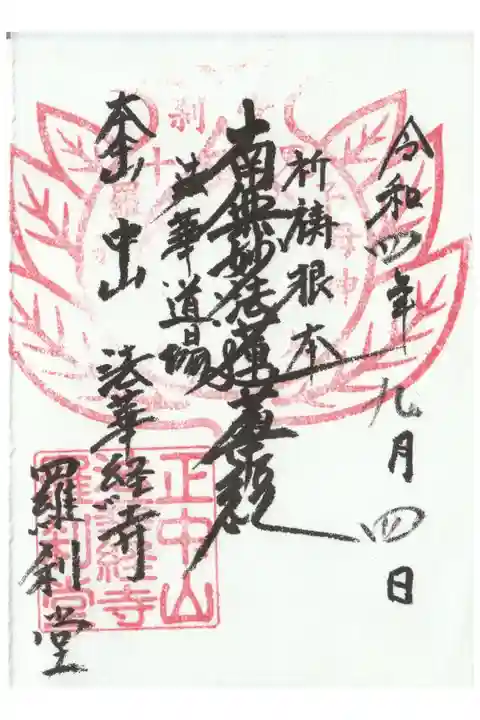 令和四年九月四日
祈祷根本
南無妙法蓮華経
法華道場
大本山 中山 法華経寺
羅刹堂
正中山
法華経寺
羅刹堂